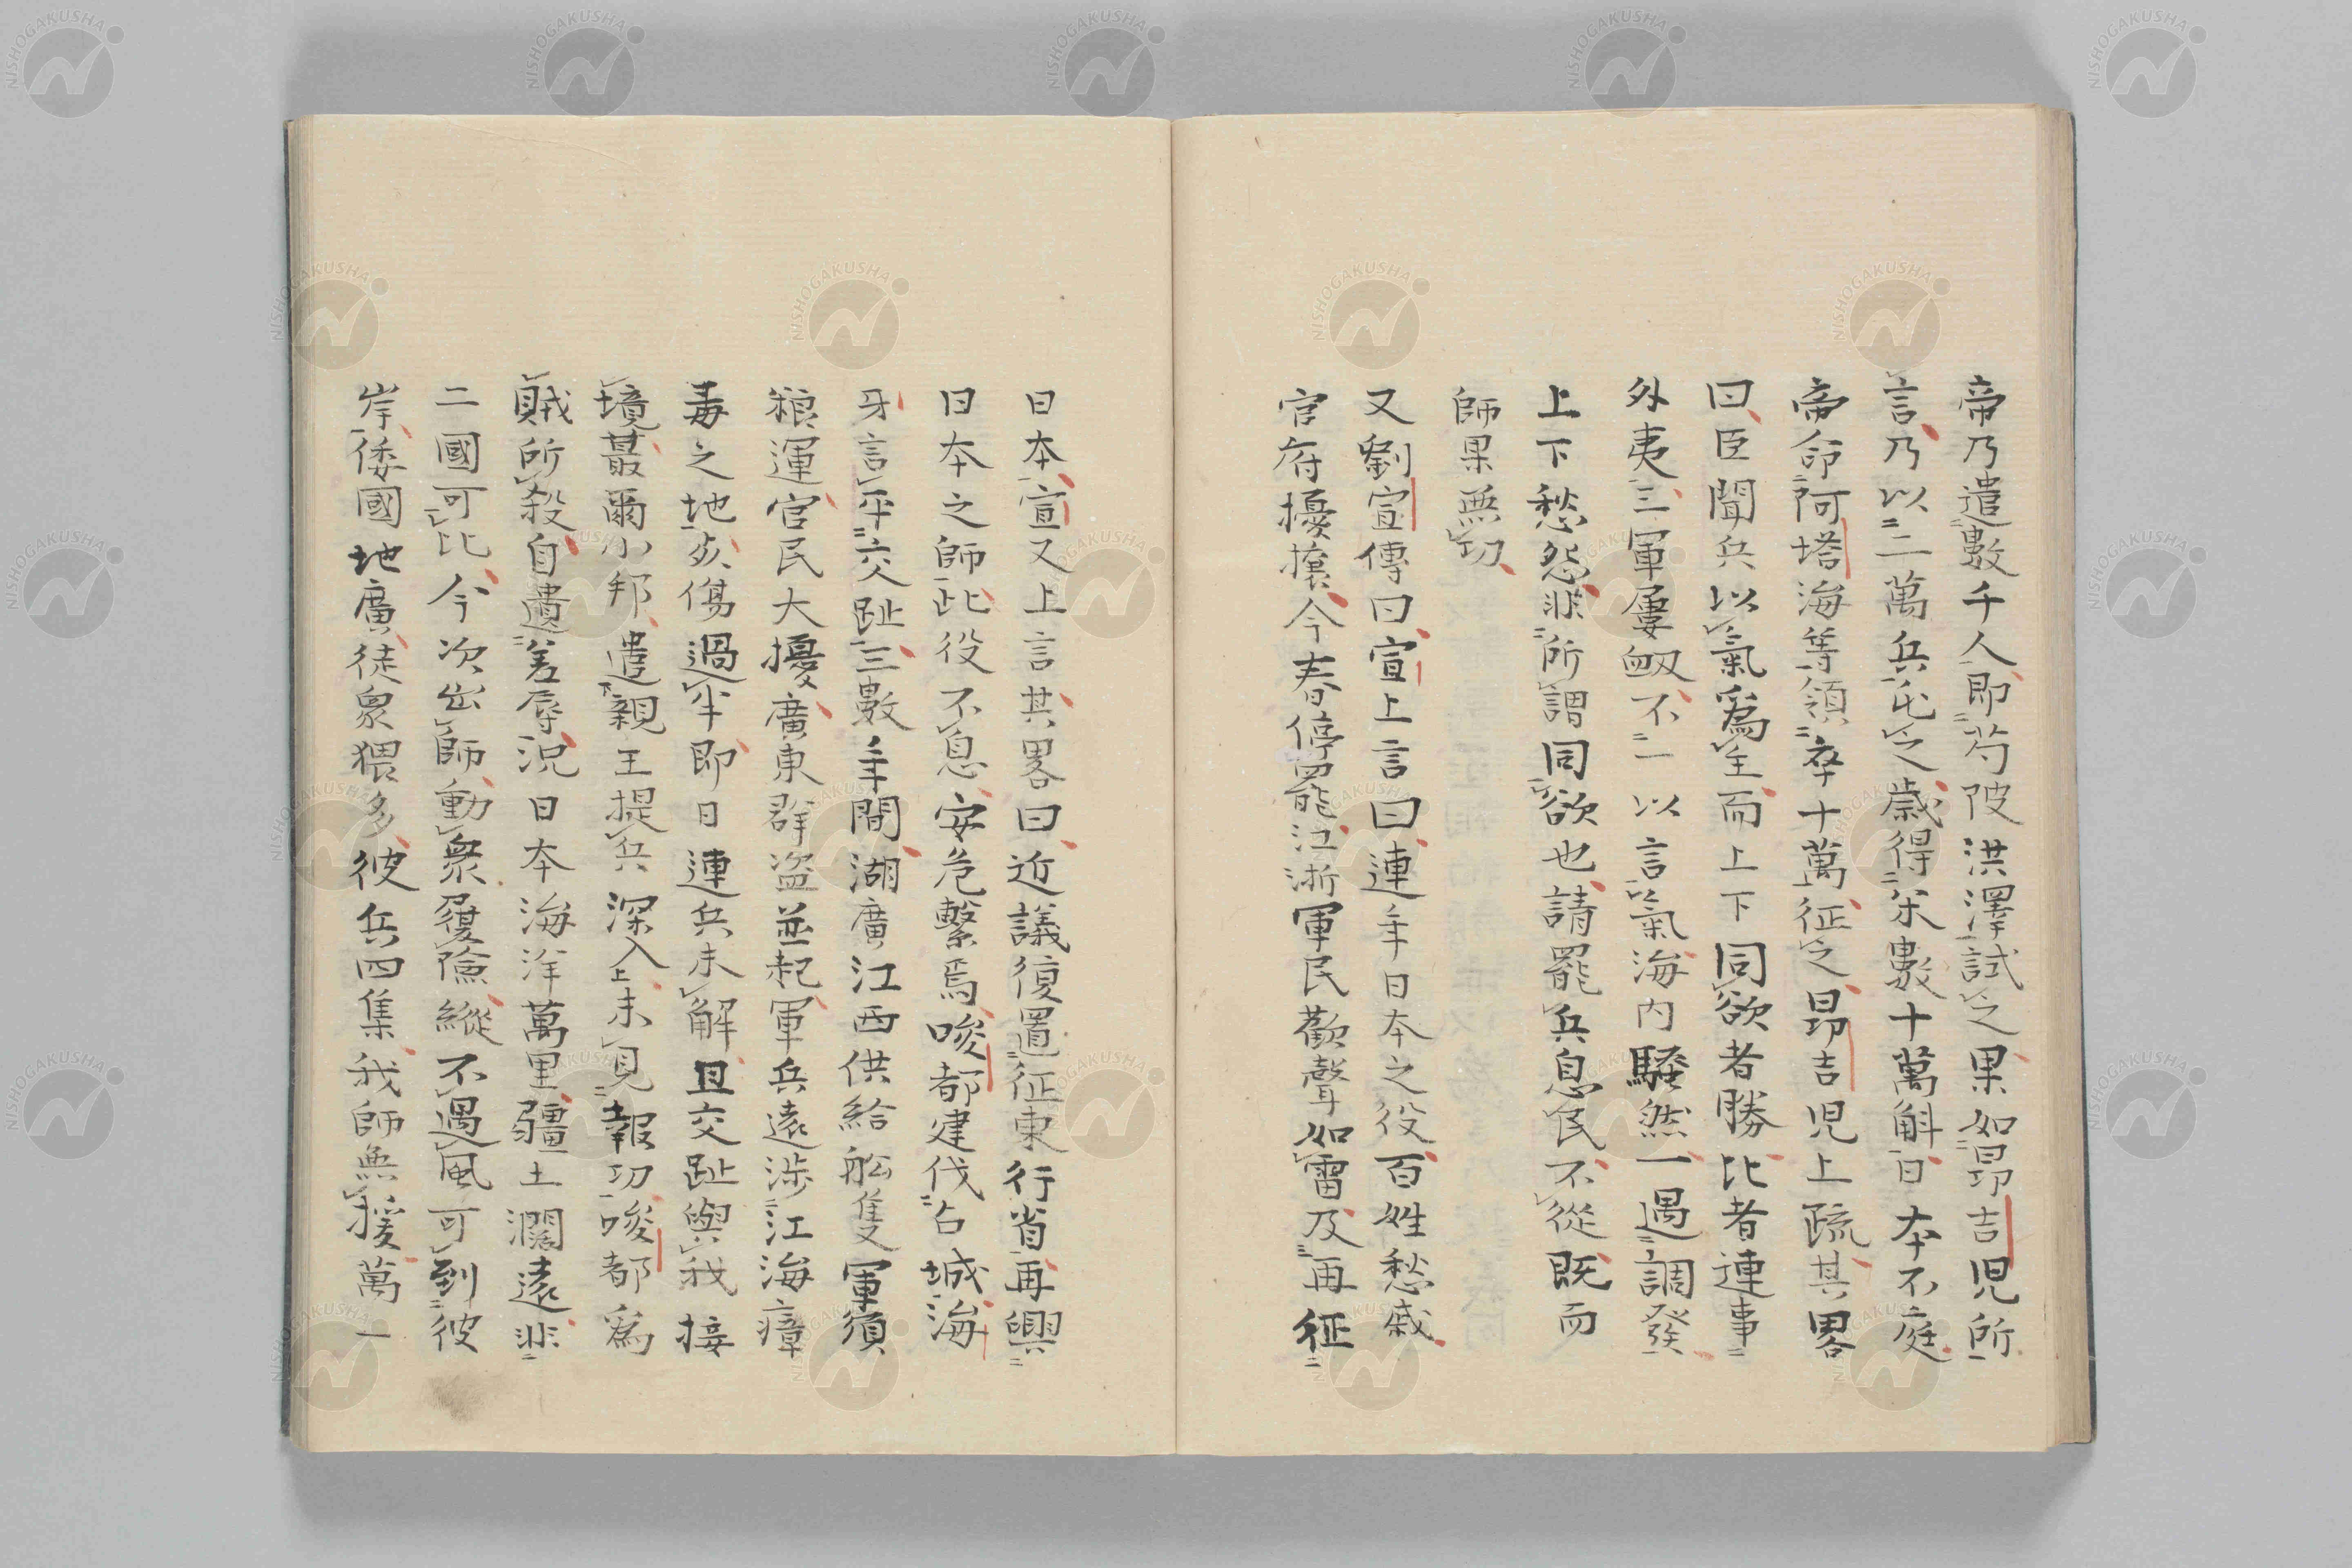 帝乃遣數千人即芍陂洪澤試之果如昂吉児所
言乃以二萬兵屯之歳得米數十萬斛日本不庭
帝命阿塔海等領卒十萬征之昂吉児上疏其畧
曰臣聞兵以氣爲主而上下同欲者勝比者連事
外夷三軍屢衂不一以言氣海内騷然一遇調發
上下愁怨非所謂同欲也請罷兵息民不從既而
師果無功
又劉宣傳曰宣上言曰連年日本之役百姓愁戚
官府擾攘今春停罷江浙軍民歡聲如雷及再征
日本宣又上言其畧曰近議復置征東行省再興
日本之師此役不息安危繫焉唆都建伐占城海
牙言平交趾三數年間湖廣江西供給舩隻軍須
粮運官民大擾廣東群盗並起軍兵遠渉江海瘴
毒之地死傷過半即日連兵未解且交趾與我接
境蕞爾小邦遣親王提兵深入未見報功唆都爲
賊所殺自遺羞辱況日本海洋萬里疆土濶遠非
二國可比今次出師動衆履險縱不遇風可到彼
岸倭國地廣徒衆猥多彼兵四集我師無援萬一
NISHOGAKUSHA